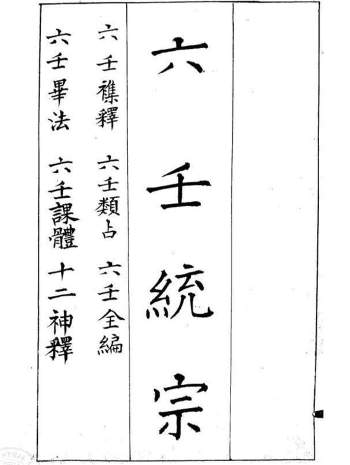 六壬統宗
六壬襍釋　六壬類占　六壬全編
六壬畢法　六壬課體　十二神釋